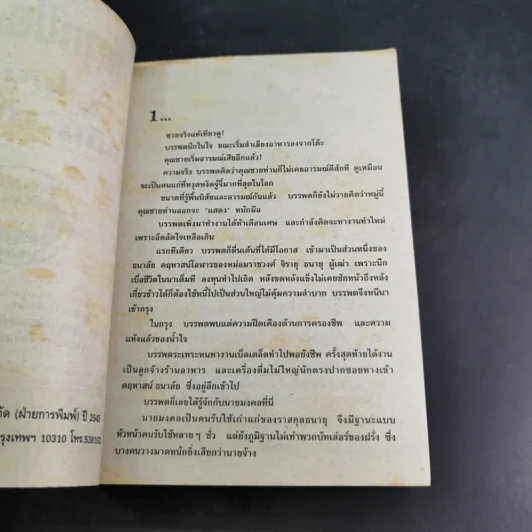 กัด (ฝ่ายการพิมพ์) ปี 2545
รุงเทพฯ 10310 โทร.538102
1...
ซวยจริงแท้เทียวดู!
บรรพตนึกในใจ ขณะเริ่มลำเลียงอาหารลงจากโต๊ะ
คุณชายเริ่มอารมณ์เสียอีกแล้ว!
ความจริง บรรพตคิดว่าคุณชายท่านก็ไม่เคยอารมณ์ดีสักที ดูเหมือน
จะเป็นคนแก่ที่หงุดหงิดจู้จี้มากที่สุดในโลก
ขนาดที่รู้พื้นนิสัยและอารมณ์กันแล้ว บรรพตก็ยังไม่วายคิดว่าหมู่นี้
คุณชายท่านออกจะ "แสดง" หนักมือ
บรรพตเพิ่งมาทำงานได้ห้าเดือนเศษ และกำลังคิดจะหางานทำใหม่
เพราะอึดอัดใจเหลือเกิน
แรกทีเดียว บรรพตก็ตื่นเต้นที่ได้มีโอกาส เข้ามาเป็นส่วนหนึ่งของ
ธนาลัย คฤหาสน์โอฬารของหม่อมราชวงศ์ จิรายุ ธนายุ ผู้เฒ่า เพราะนึก
เบื่อชีวิตในนาเต็มที ลงทุนทำไปเถิด หลังขดหลังแข็งไม่เคยชักหน้าถึงหลัง
เกี่ยวข้าวได้ก็ต้องใช้หนี้ไปเป็นส่วนใหญ่ไม่คุ้มความลำบาก บรรพตจึงหนีนา
เข้ากรุง
ในกรุง บรรพตพบแต่ความฝืดเคืองด้านการครองชีพ และความ
แห้งแล้วของน้ำใจ
บรรพตระเหระหนทางานเบ็ดเตล็ดทำไปพอยังชีพ ครั้งสุดท้ายได้งาน
เป็นลูกจ้างร้านอาหาร และเครื่องดื่มไม่ใหญ่นักตรงปากซอยทางเข้า
คฤหาสน์ ธนาลัย ซึ่งอยู่ลึกเข้าไป
บรรพตก็เลยได้รู้จักกับนายมงคลที่นี่
นายมงคลเป็นคนรับใช้เก่าแก่ของราสกุลธนายุ จึงมีฐานะแบบ
หัวหน้าคนรับใช้หลาย ๆ ชั่ว แต่ยังภูมิฐานไม่เท่าพวกบัทเล่อร์ของฝรั่ง ซึ่ง
บางคนวางมาดหนักยิ่งเสียกว่านายจ้าง